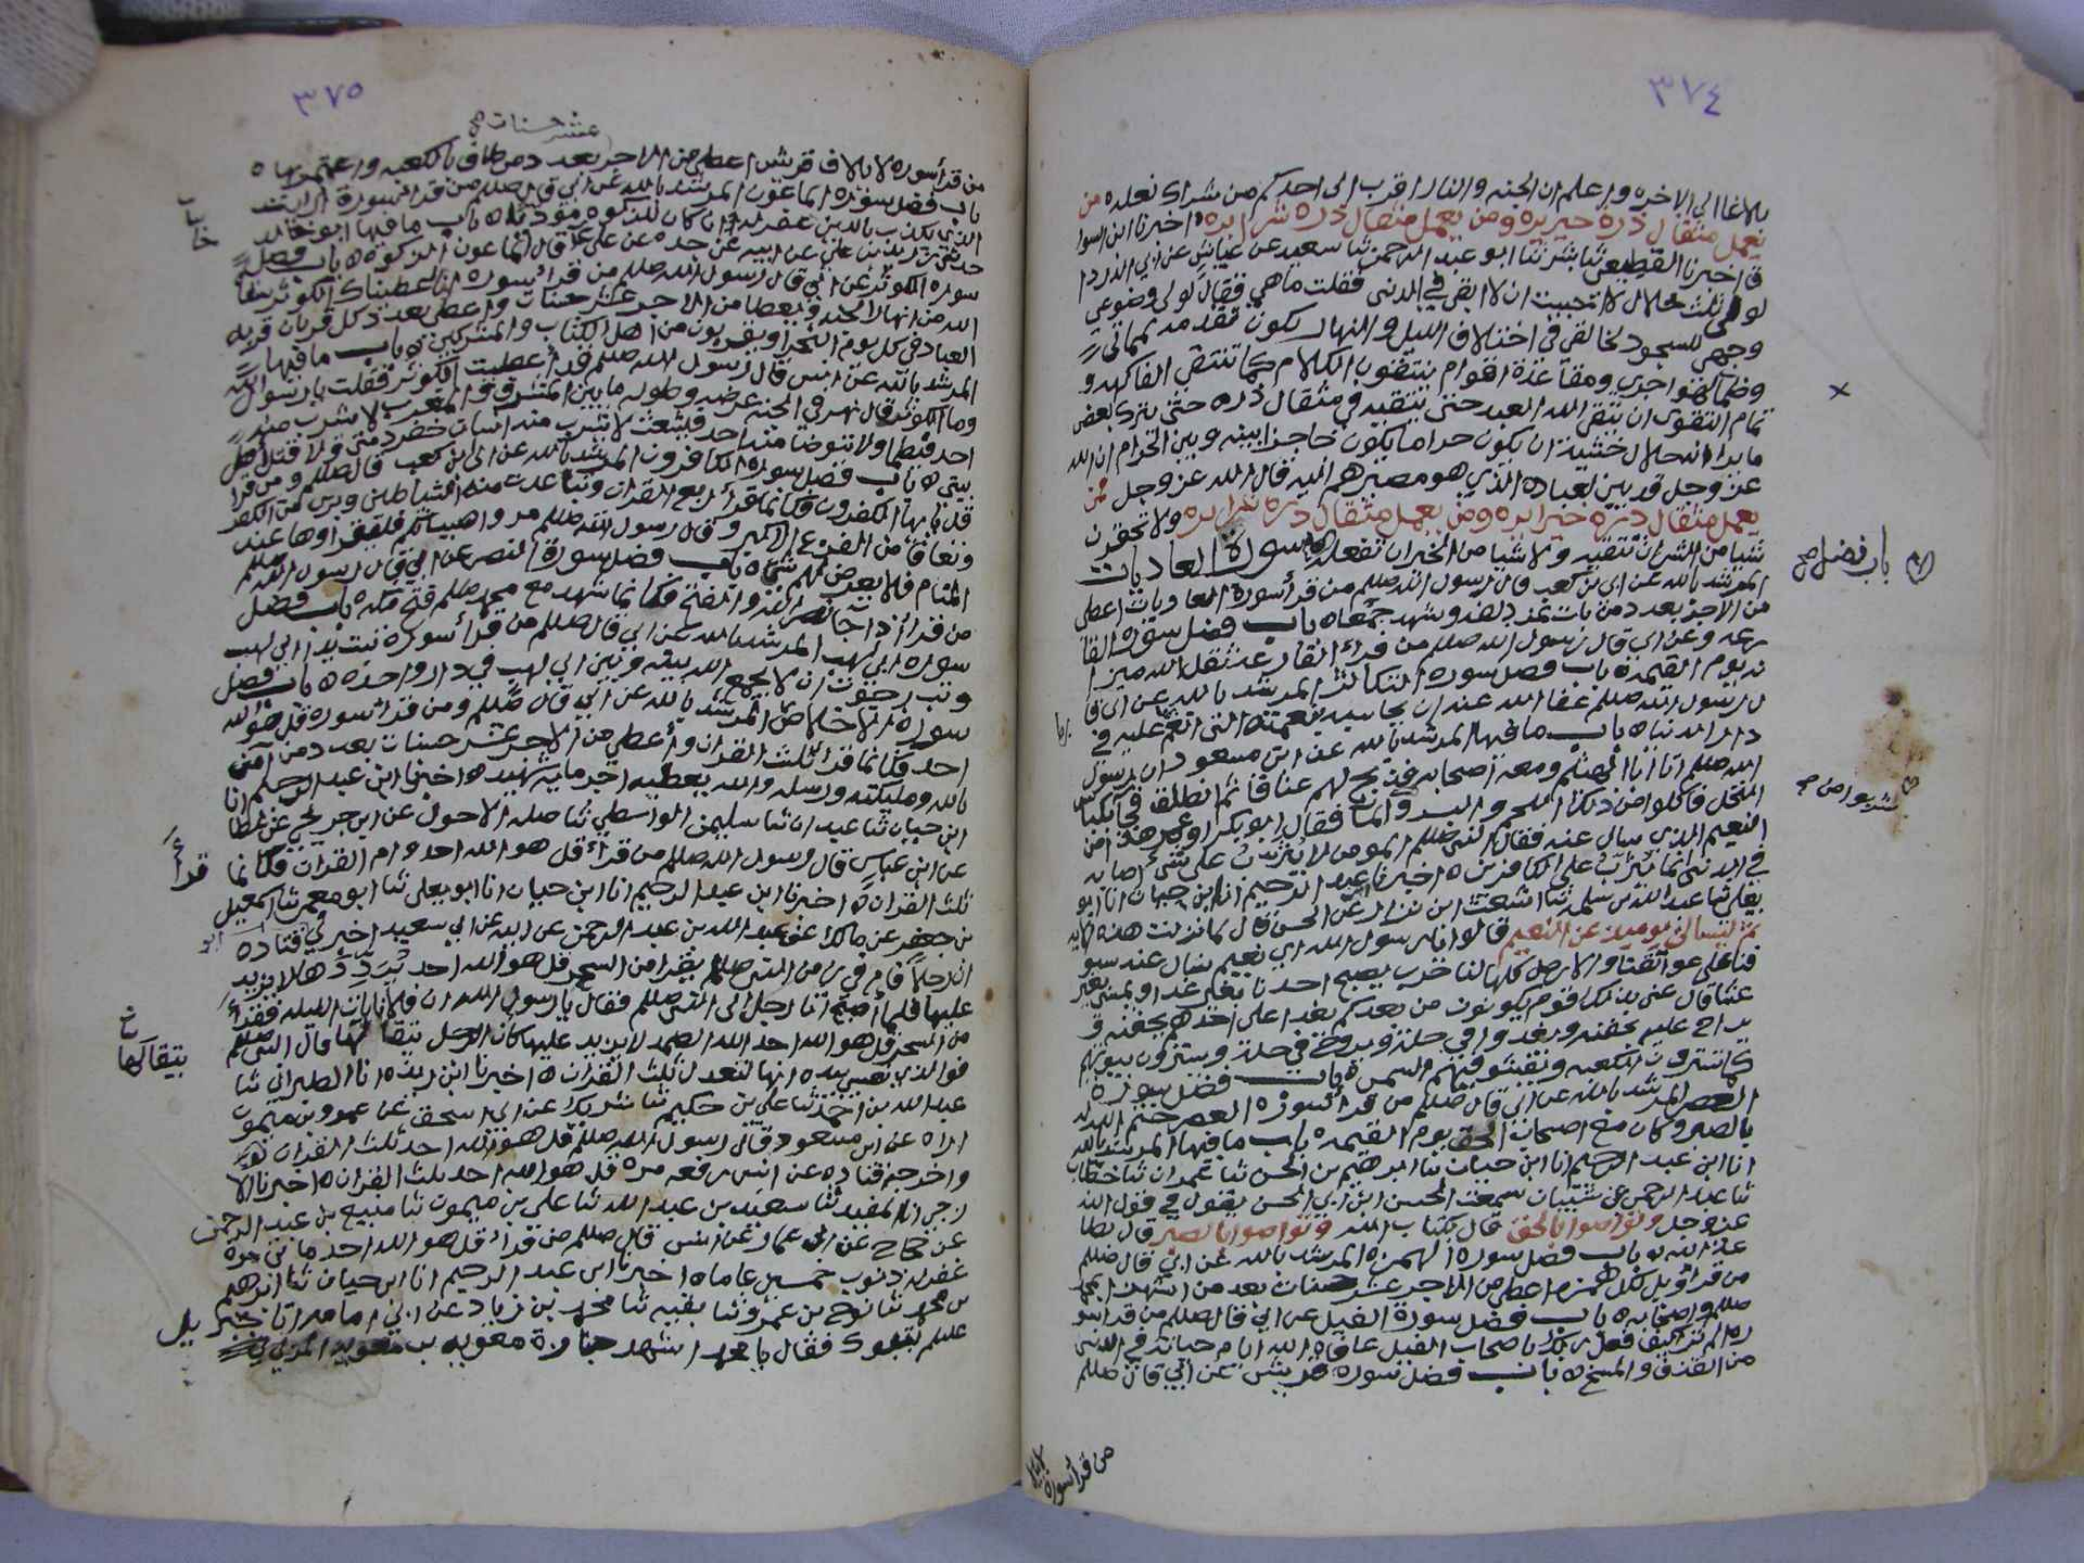 ٣٧٤
بلاغا الى الاخره واعلم ان الجنه والنار اقرب الى احدكم من شراك نعله من
يعمل مثقال ذرة خيرا يره ومن يعمل مثقال ذرة شرا يره اخبرنا ابن السوا
ق اخبرنا القطيعي ثنا بشر ثنا ابو عبد الرحمن ثنا سعيد عن عياش عن ابي الدردا
لولا ثلث خلال لاحببت ان لا ابقى في الدنى فقلت ما هي فقال لولا وضوعي
وجهي للسجود لخالقي في اختلاف الليل والنهار يكون تقدمه لحياتي
وظمأ الهواجر ومقاعدة اقوام ينتقون الكلام كما تنتقى الفاكهه و
تمام التقوى ان يتقي الله العبد حتى يتقيه في مثقال ذره حتى يترك بعض
ما يرا انه حلال خشية ان يكون حراما يكون حاجزا بينه وبين الحرام ان الله
عز وجل قد بين لعباده الذي هو مصيرهم اليه قال الله عز وجل فمن
يعمل مثقال ذرة خيرا يره ومن يعمل مثقال ذرة شرا يره ولا تحقرن
شيا من الشر ان تتقيه ولا شيا من الخير ان تفعله سورة العاديات
باب فضل صح
المرشد بالله عن ابي بن كعب قال رسول الله صللم من قرأ سورة العاديات اعطي
من الاجر بعدد من بات بمزدلفه وشهد جمعا ه باب فضل سورة القا
رعه وعن ابي قال رسول الله صللم من قرأ القارعه ثقل الله ميزا
نه يوم القيمه ه باب فضل سورة التكاثر المرشد بالله عن ابي قا
ل رسول الله صللم عفا الله عنه ان يحاسبه بنعمته التي انعم عليه في
دار الدنيا ه باب ما فيها المرشد بالله عن ابن مسعود ان رسول
الله صللم اتا ابا الهيثم ومعه اصحابه فذبح لهم عناقا ثم انطلق فجا بكبايس
النخل فاكلوا من ذلك اللحم والبسر والما فقال ابو بكر او عمر هذا من
النعيم الذي نسال عنه فقال النبي صللم المومن لا يثرب على شي اصابه
في الدنى انما يثرب على الكافرين ه اخبرنا عبد الرحيم انا ابن حيان انا ابو
يعلى ثنا عبد الله بن سلمه ثنا اشعث ابن نزار عن الحسن قال لما نزلت هذه الايه
ثم لتسالن يوميذ عن النعيم قالوا يا رسول الله اي نعيم نسال عنه سيو
فنا على عواتقنا والارض كلها لنا حرب يصبح احدنا بغير غدا ويمسي بغير
عشا قال عنى بذلك قوم يكونون من بعدكم يغدا على احدهم بجفنه و
يراح عليه بجفنه ويغدوا في حلة ويروح في حلة ويسترون بيوتهم
كما تسترون الكعبه ويفشو فيهم السمن ه باب فضل سورة
العصر المرشد بالله عن ابي قال صللم من قرأ سورة العصر ختم الله له
بالصبر وكان مع اصحاب الحق يوم القيمه ه باب ما فيها المرشد بالله
انا ابن عبد الرحيم انا ابن حيان ثنا ابرهيم بن الحسن ثنا عمران ثنا خطاب
ثنا عبد الرحمن عن شيبان سمعت الحسن ابن ابي الحسن يقول في قول الله
عز وجل وتواصوا بالحق قال كتاب الله وتواصوا بالصبر قال بطا
عة الله ه باب فضل سورة الهمزه المرشد بالله عن ابي قال صللم
من قرأ ويل لكل همزه اعطي من الاجر عشر حسنات بعدد من استهزا بمحمد
صللم واصحابه ه باب فضل سورة الفيل عن ابي قال صللم من قرا سو
رة الم تر كيف فعل ربك باصحاب الفيل عافاه الله ايام حياته في الدنى
من القذف والمسخ ه باب فضل سورة قريش عن ابي قال صللم
من قرأ سورة لايلا
٣٧٥
عشر حسنات صح
من قرأ سورة لايلاف قريش اعطي من الاجر بعدد من طاف بالكعبه واعتمر بها ه
باب فضل سورة الماعون المرشد بالله عن ابي قال صللم من قرأ سورة ارايت
الذي يكذب بالدين غفر له ان كان للزكوه موديا ه باب ما فيها ابو خالد
حدثني زيد بن علي عن ابيه عن جده عن علي قال الماعون الزكوة ه باب فضل
سورة الكوثر عن ابي قال رسول الله صللم من قرأ سورة انا اعطيناك الكوثر سقاه
الله من انهار الجنه ويعطا من الاجر عشر حسنات واعطي بعدد كل قربان قربه
العباد في كل يوم النحر او يقربون من اهل الكتاب والمشركين ه باب ما فيها
المرشد بالله عن انس قال رسول الله صللم قد اعطيت الكوثر فقلت يا رسول الله
وما الكوثر قال نهر في الجنه عرضه وطوله ما بين المشرق والمغرب لا يشرب منه
احد فيظما ولا يتوضا منه احد فيشعث لا يشرب منه انسان خفر ذمتي ولا قتل اهل
بيتي ه باب فضل سورة الكافرون المرشد بالله عن ابي بن كعب قال صللم ومن قرا
قل يا ايها الكفرون فكانما قرأ ربع القران وتباعدت منه الشياطين وبري من الكفر
وتعافا من الفزع الاكبر وقال رسول الله صللم مروا صبيانكم فليقراوها عند
المنام فلا يعرض لهم شي ه باب فضل سورة النصر عن ابي قال رسول الله صللم
من قرا اذا جا نصر الله والفتح فكانما شهد مع محمد صللم فتح مكه ه باب فضل
سورة ابي لهب المرشد بالله عن ابي قال صللم من قرأ سورة تبت يدا ابي لهب
وتب رجوت ان لا يجمع الله بينه وبين ابي لهب في دار واحده ه باب فضل
سورة الاخلاص المرشد بالله عن ابي قال صللم ومن قرأ سورة قل هو الله
احد فكانما قرا ثلث القران واعطي من الاجر عشر حسنات بعدد من آمن
بالله ومليكته ورسله والله يعطيه اجر ماية شهيد ه اخبرنا ابن عبد الرحيم انا
ابن حيان ثنا عبدان ثنا سليمن الواسطي ثنا صله الاحول عن ابن جريج عن عطا
عن ابن عباس قال رسول الله صللم من قرأ قل هو الله احد وام القران فكانما قرأ
ثلث القران ه اخبرنا ابن عبد الرحيم انا ابن حيان انا ابو يعلى ثنا ابو معمر ثنا اسمعيل
بن جعفر عن مالك عن عبد الله بن عبد الرحمن عن ابيه عن ابي سعيد اخبرني قتاده
ان رجلا قام في زمن النبي صللم يقرا من السحر قل هو الله احد يرددها لا يزيد
عليها فلما اصبح اتا رجل الى النبي صللم فقال يا رسول الله ان فلانا بات الليله فقرأ
من السحر قل هو الله احد الله الصمد لا يزيد عليها كان الرجل يتقالها قال النبي صللم
يتقالها
فوالذي نفسي بيده انها لتعدل ثلث القران ه اخبرنا ابن ريذه انا الطبراني ثنا
عبد الله بن احمد ثنا علي بن حكيم ثنا شريك عن ابي اسحق عن عمرو بن ميمون
اراه عن ابن مسعود قال رسول الله صللم قل هو الله احد ثلث القران
واخرجه قتاده عن انس رفعه مره قل هو الله احد ثلث القران ه اخبرنا الا
زجي انا المفيد ثنا سعيد بن عبد الله ثنا علي بن ميمون ثنا مبيح بن عبد الرحمن
عن حجاج عن ابي عمار عن انس قال صللم من قرأ قل هو الله احد مايتي مره
غفر له ذنوب خمسين عاما ه اخبرنا ابن عبد الرحيم انا ابن حيان ثنا ابرهيم
بن محمد ثنا نوح بن عمرو ثنا بقيه ثنا محمد بن زياد عن ابي امامه اتا جبريل
عليلم بتبوك فقال يا محمد اشهد جنازة معويه بن معويه المزني